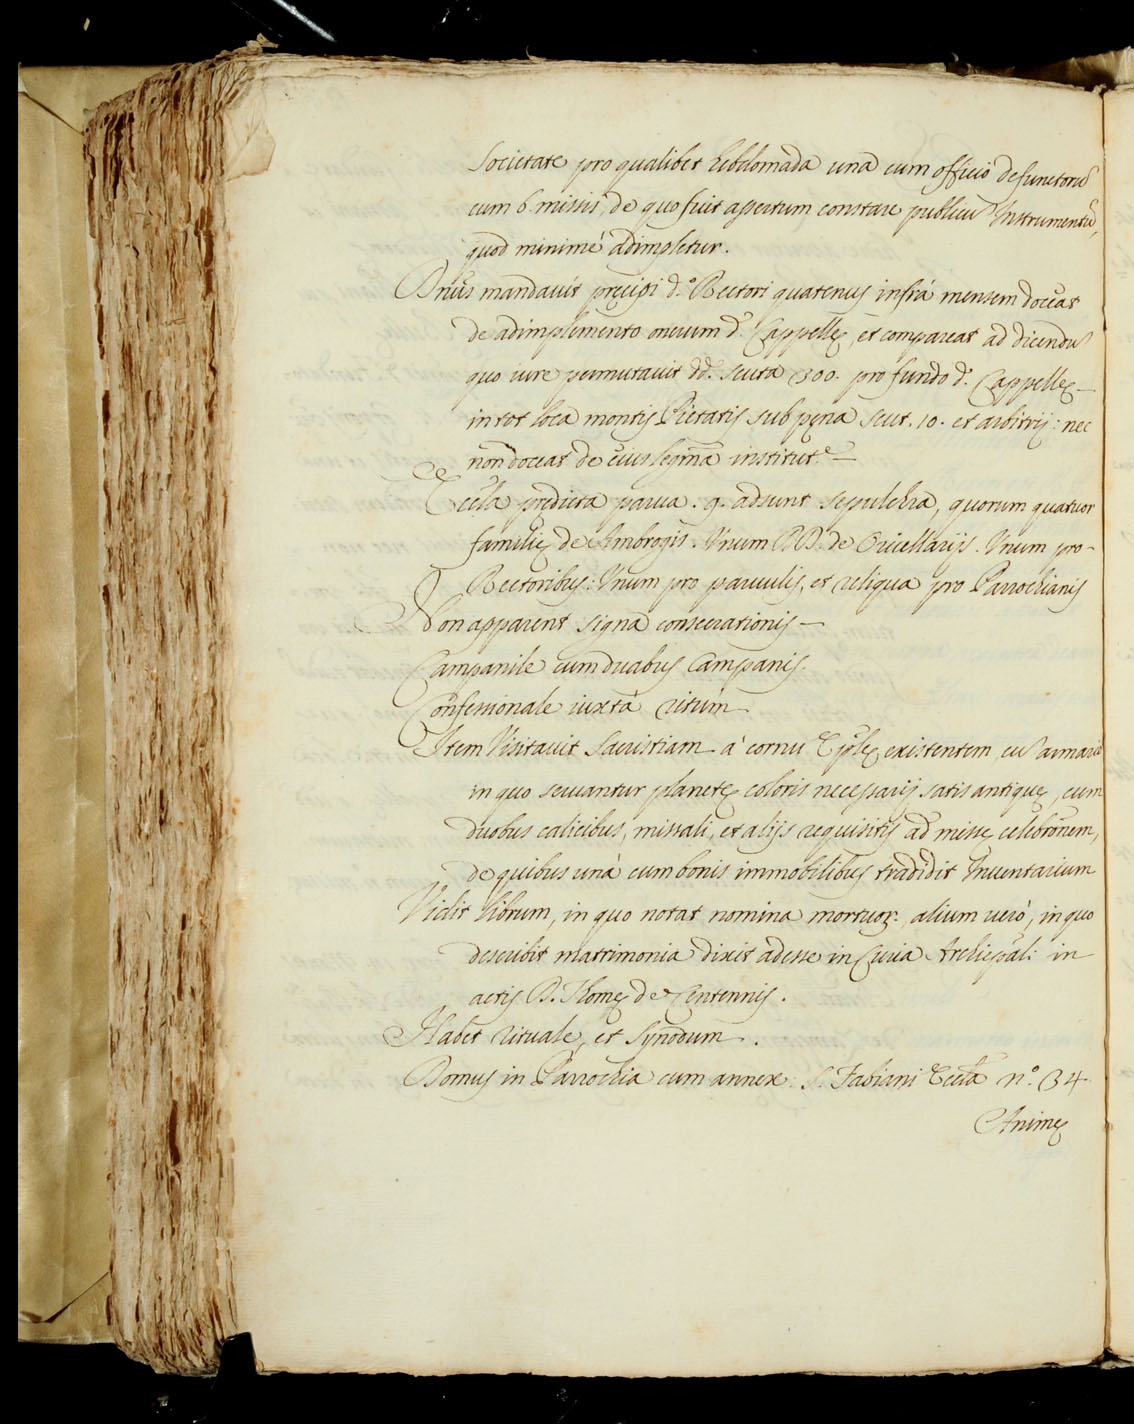 Societate pro qualibet hebdomada una cum officio defunctorũ
cum 6 missis, de quo fuit assertum constare publicũ Instrumentũ,
quod minimè adimpletur.
Dñus mandavit precipi d.º Rectori quatenus infrà mensem doceat
de adimplemento onerum d.ᵉ Cappellę, et compareat ad dicendũ
quo iure permutavit dd. scuta 300. pro fundo d.ᵉ Cappellę
in tot loca montis Pietatis sub pęna scut. 10. et arbitrij: nec
non doceat de eius legmã institut.ᵉ
Eccl̃a prędicta parva. 9. adsunt sepulchra, quorum quatuor
familię de Ambrogis. Vnum DD. de Oricellarijs. Vnum pro
Rectoribus: Vnum pro parvulis, et reliqua pro Parrochianis
Non apparent signa consecrationis
Campanile cum duabus Campanis.
Confessionale iuxtà ritum
Item Visitavit Sacristiam à cornu Ep̃lę existentem, cũ armario
in quo servantur planetę coloris necessarij satis antiquę, cum
duobus calicibus, missali, et alijs requisitis ad missę celebrõnem,
de quibus unà cum bonis immobilibus tradidit Inventarium
Vidit librum, in quo notat nomina mortuor. alium verò, in quo
describit matrimonia dixit adesse in Curia Archiep̃al: in
actis D. Thomę de Centennis.
Habet rituale, et Synodum.
Domus in Parrochia cum annex. S. Fabiani Eccl̃a n.º 34
Animę